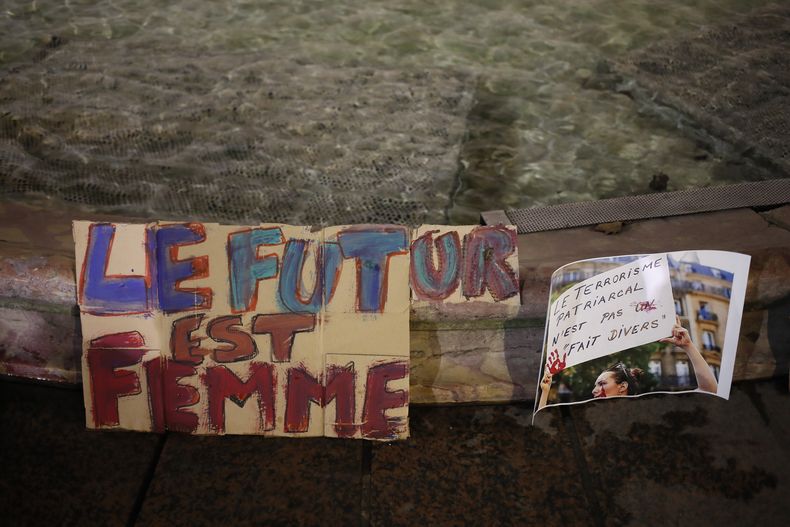 LE FUTUR
EST
FEMME
LE TERRORISME
PATRIARCAL
N'EST PAS UN
"FAIT DIVERS"